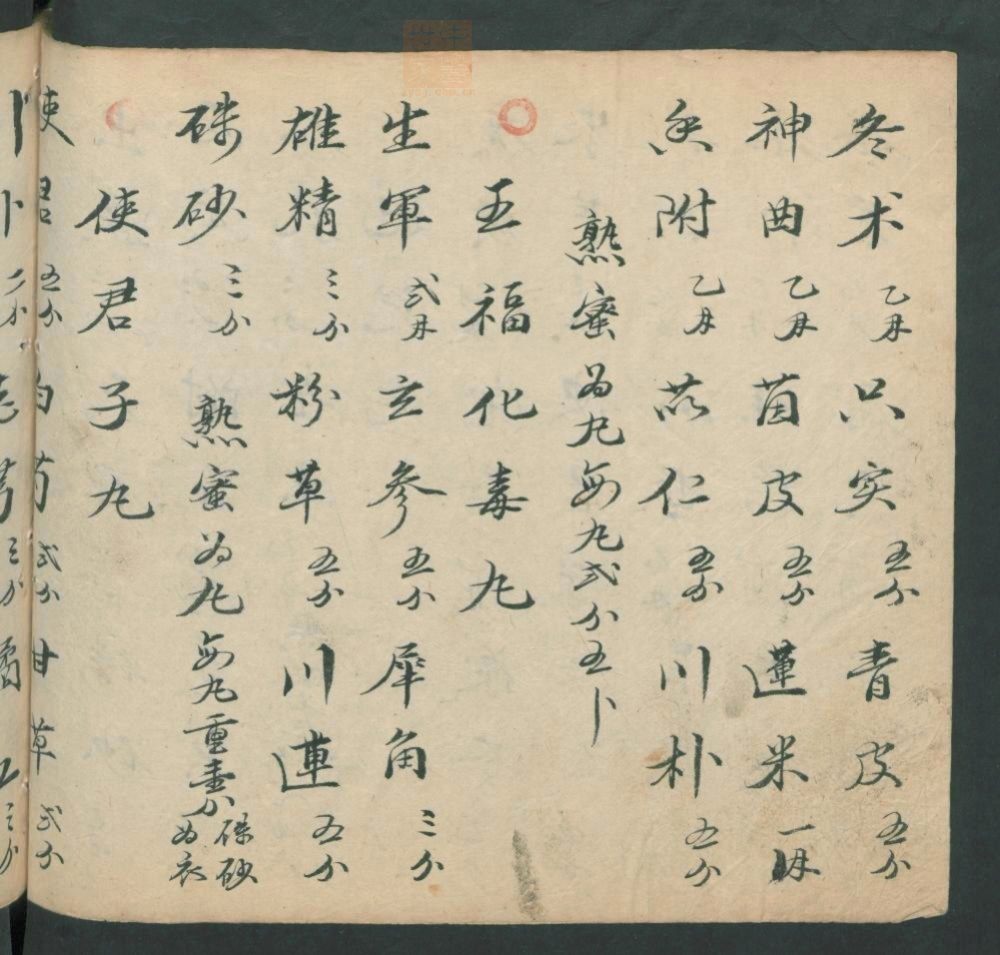 冬术乙両只实五分青皮五分
神曲乙両茵皮五分蓮米一両
香附乙両苡仁五分川朴五分
熟蜜为丸每丸弍分五卜
五福化毒丸
生軍弍両玄參五分犀角三分
雄精三分粉草五分川連五分
硃砂三分熟蜜为丸每丸重壹分硃砂为衣
使君子丸
使君五分白芍弍分甘草弍分